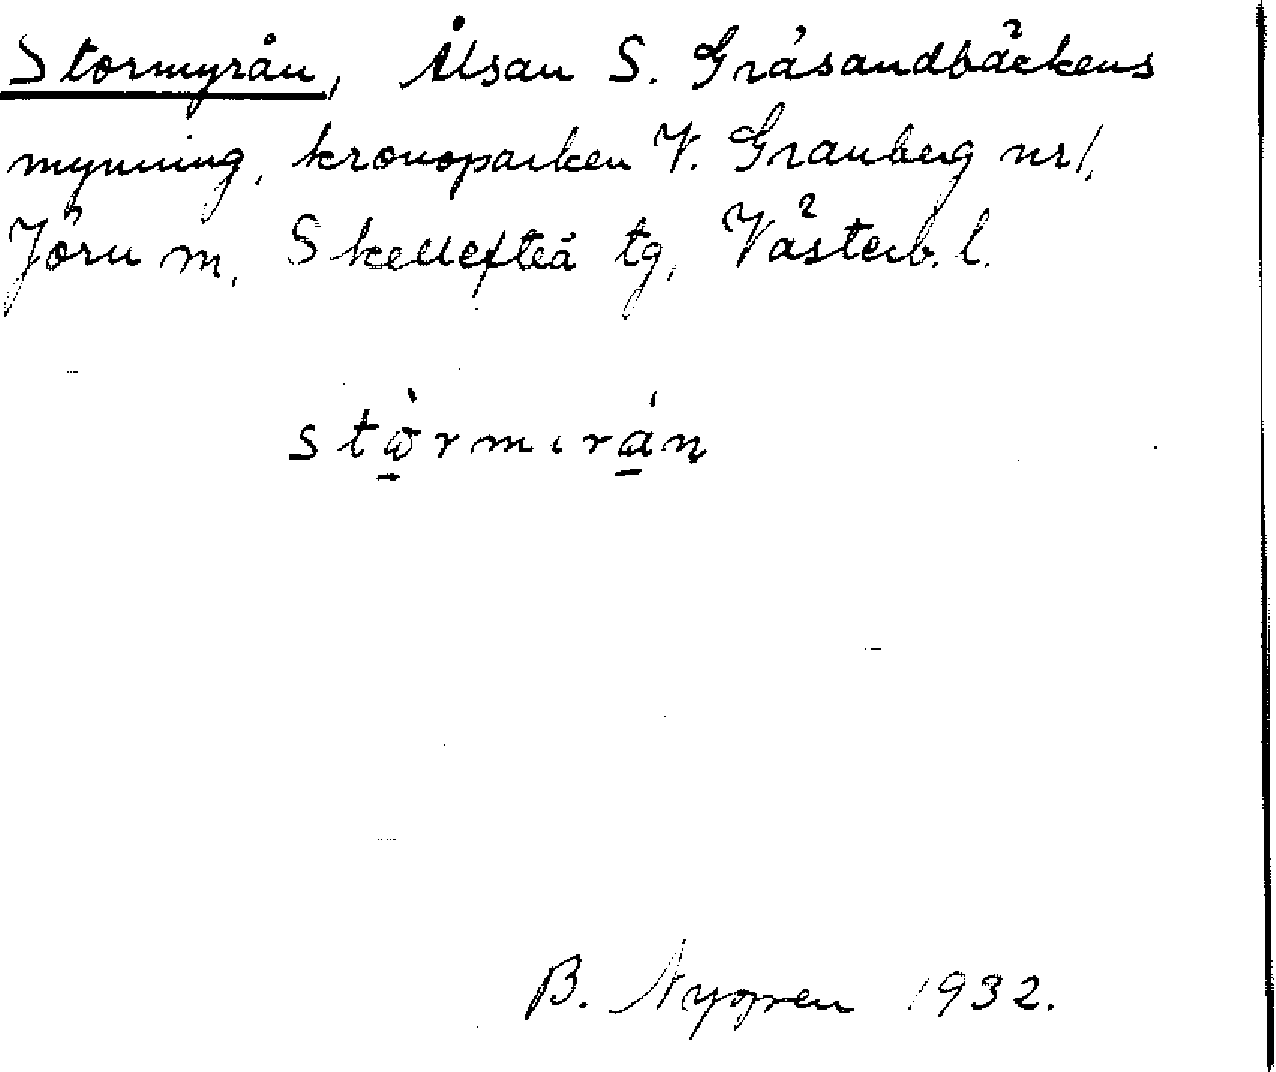 Stormyrån, Ålsån S. Gråsandbäckens
mynning, kronoparken V. Granberg nr 1,
Jörn m, Skellefteå tg, Västerb. l.
stòrmırán
B. Nygren 1932.